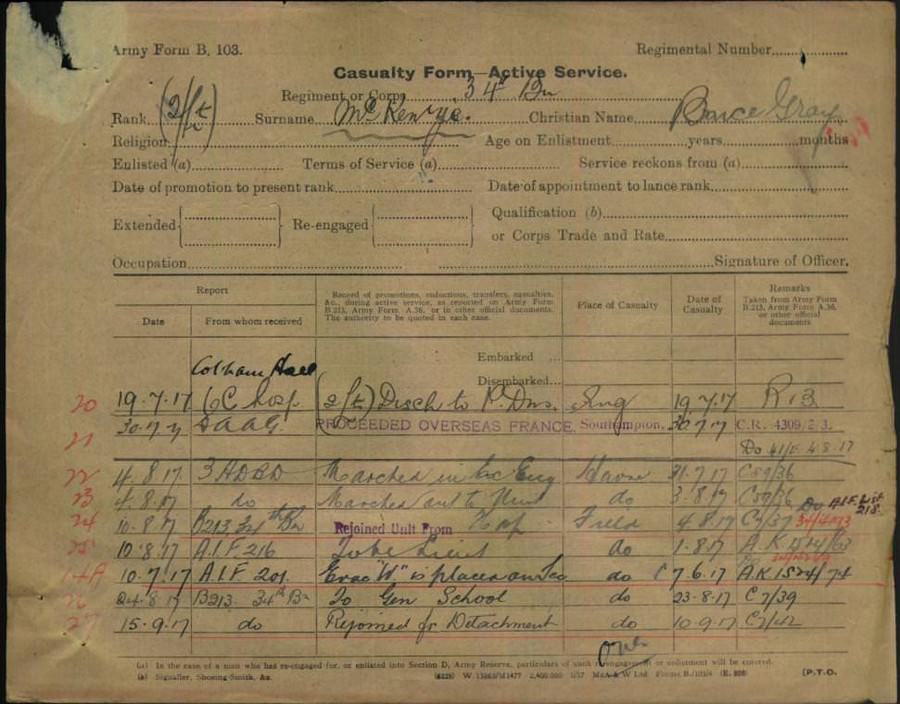 Army Form B. 103.
Regimental Number
Casualty Form—Active Service.
Regiment or Corps 34th Bn
Rank (2/Lt) Surname McKenzie. Christian Name Gray
Religion Age on Enlistment years months
Enlisted (a) Terms of Service (a) Service reckons from (a)
Date of promotion to present rank Date of appointment to lance rank
Extended Re-engaged Qualification (b)
or Corps Trade and Rate
Occupation Signature of Officer.
Report Record of promotions, reductions, transfers, casualties, &c., during active service, as reported on Army Form B.213, Army Form A.36, or in other official documents. The authority to be quoted in each case. Place of Casualty Date of Casualty Remarks Taken from Army Form B.213, Army Form A.36, or other official documents
Date From whom received
Embarked ...
Cobham Hall Disembarked...
20 19.7.17 Hosp (2/Lt) Disch to Eng 19.7.17
21 30.7.17 DAAG. PROCEEDED OVERSEAS FRANCE, Southampton. 30.7.17 C.R. 4309/2/3.
Do 4.8.17
22 4.8.17 3 ADBD Marched in ex Eng Havre 31.7.17 C59/36
23 4.8.17 do Marched out to Unit do 3.8.17 C59/36 Do A.I.F. List 218.
24 10.8.17 B213 34th Bn Rejoined Unit From Hosp Field 4.8.17 C7/37
25 10.8.17 A.I.F. 216 To be Lieut do 1.8.17
14A 10.7.17 A.I.F. 201. "W" is placed on do 7.6.17 A.K 1524/74
26 24.8.17 B213. 34th Bn To Gen School do 23.8.17 C7/39
27 15.9.17 do Rejoined fr Detachment do 10.9.17 C7/42
Over
(a) In the case of a man who has re-engaged for, or enlisted into Section D, Army Reserve, particulars of such re-engagement or enlistment will be entered.
(b) Signaller, Shoeing-Smith, &c. [P.T.O.